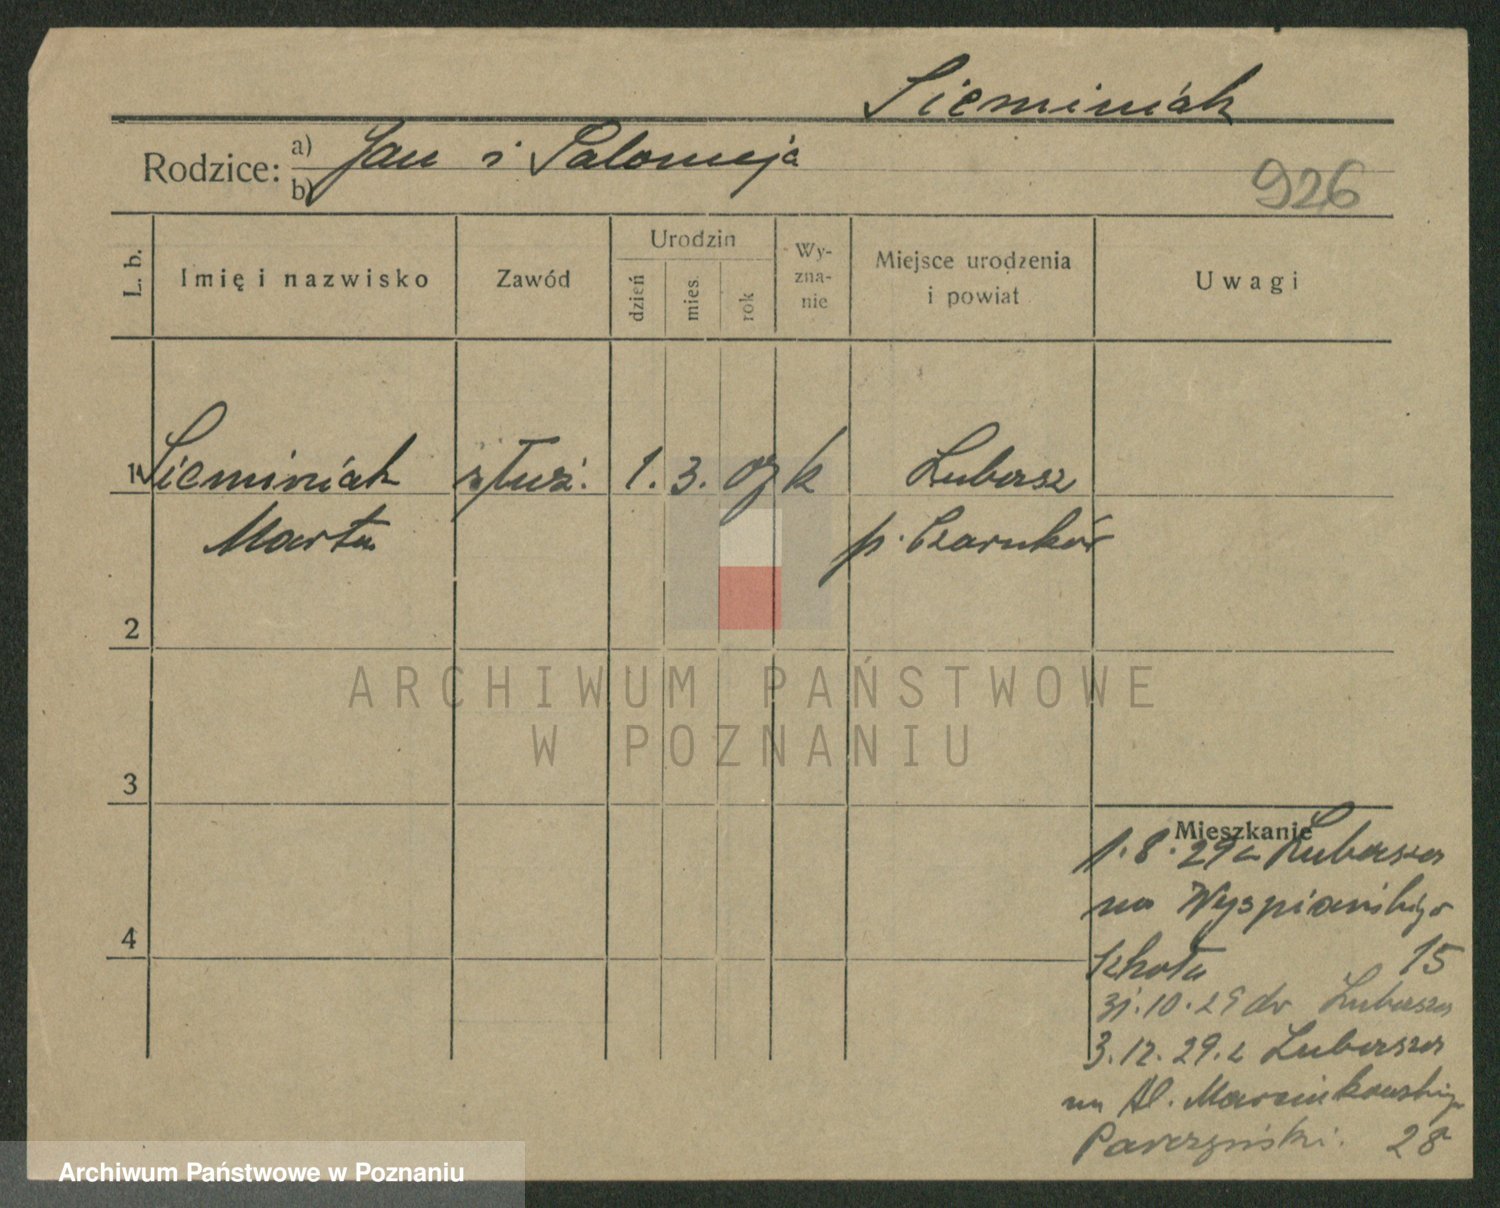 Sieminiak
Rodzice: a) Jan i Salomeja
b)
926
L. b.
Imię i nazwisko
Zawód
Urodzin
dzień
mies.
rok
Wy-
zna-
nie
Miejsce urodzenia
i powiat
Uwagi
1 Sieminiak służ. 1. 3. 07 k Lubasz
Marta p. Czarnków
2
ARCHIWUM PAŃSTWOWE
W POZNANIU
3
Mieszkanie
1.8.29 z Lubasza
na Wyspiańskiego
4
Szkoła 15
31.10.29 do Lubasza
3.12.29. z Lubasza
na Al. Marcinkowskiego
28
Archiwum Państwowe w Poznaniu